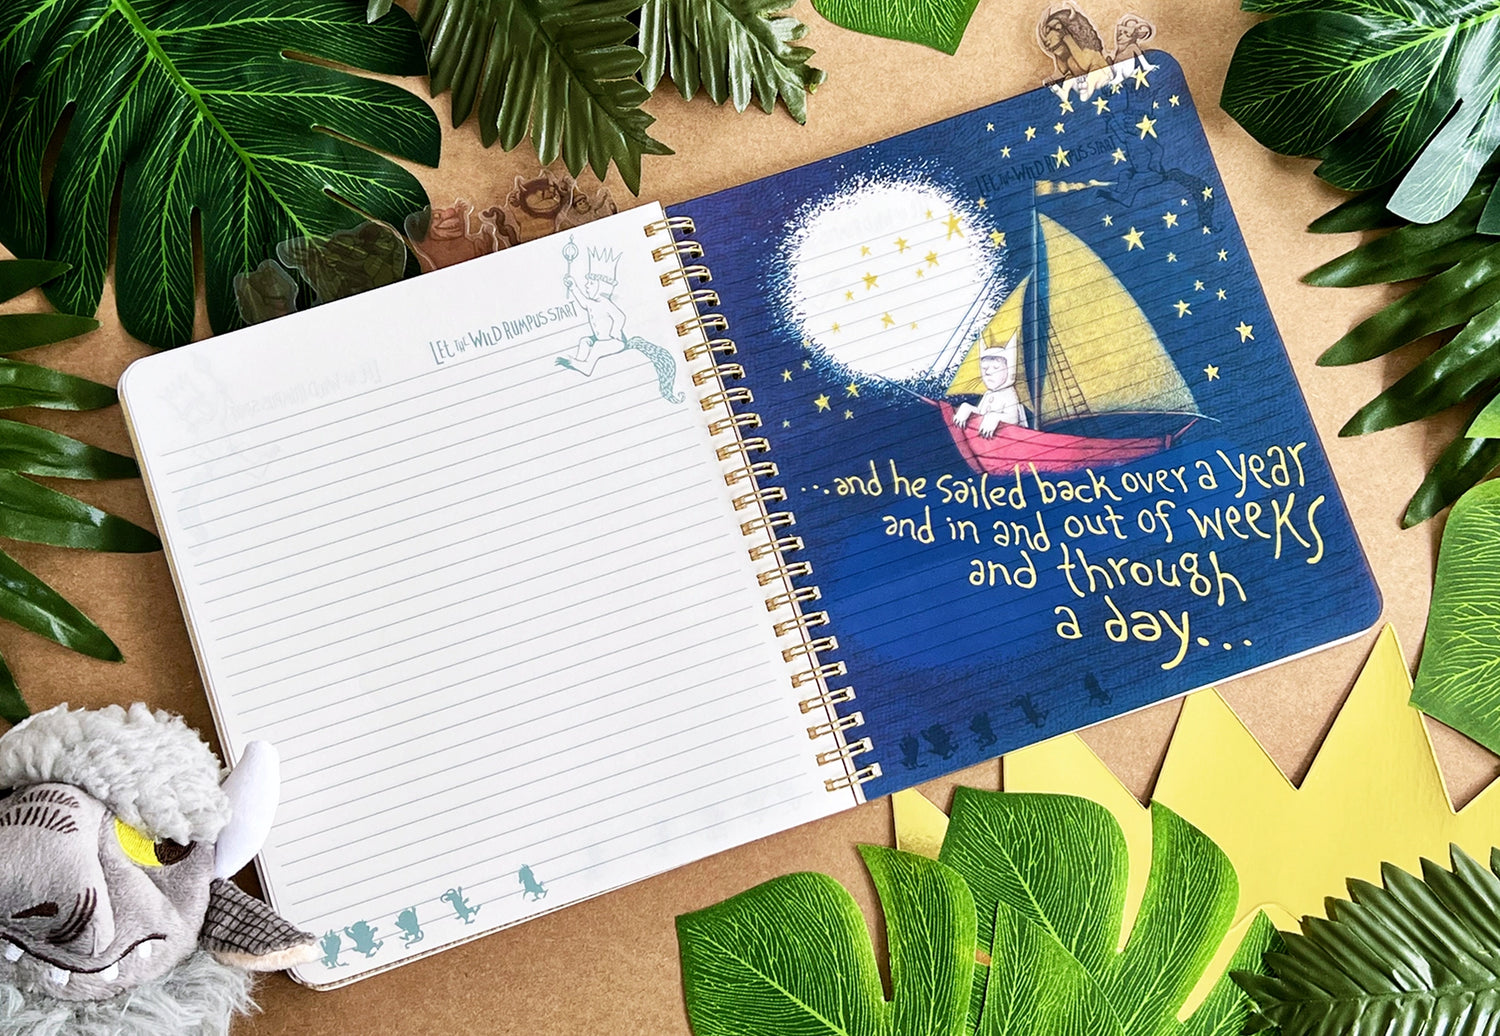 LET THE WILD RUMPUS START
LET THE WILD RUMPUS START
...and he sailed back over a year
and in and out of weeks
and through
a day...